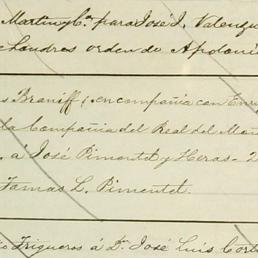 Martin y Ca. para José I. Valenzu
Londres orden de Apoloni
s Braniff (en compañia con Enri
la Compañia del Real del Mon
á José Pimentel y Heras - 2
Tomas L. Pimentel.
io Trigueros á D. José Luis Cort